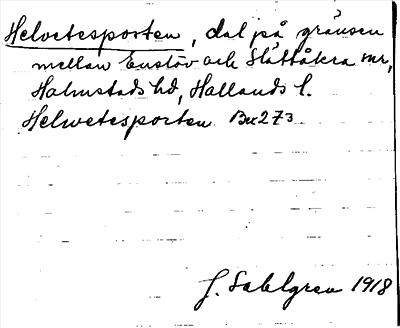 Helvetesporten, dal på gränsen
mellan Enslöv och Slättåkra snr,
Halmstads hd, Hallands l.
Helwetesporten Bu273
J. Sahlgren 1918